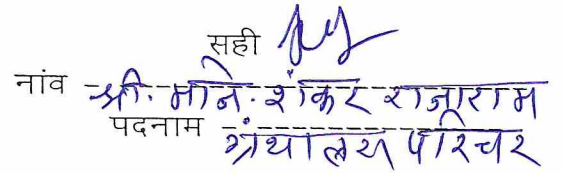 सही
नांव श्री. माने. शंकर राजाराम
पदनाम ग्रंथालय परिचर